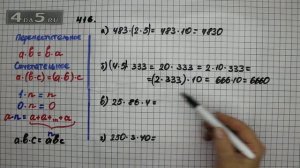 45.RU
416.
Переместительное
a·b = b·a
Сочетательное
a·(b·c)=(a·b)·c
1·n = n
0·n = 0
a·n = a+a+...+a
n
a·b·c = abc
а) 483·(2·5) = 483·10 = 4830
б) (4·5)·333 = 20·333 = 2·10·333 =
= (2·333)·10 = 666·10 = 6660
в) 25·86·4 =
г) 250·3·40 =